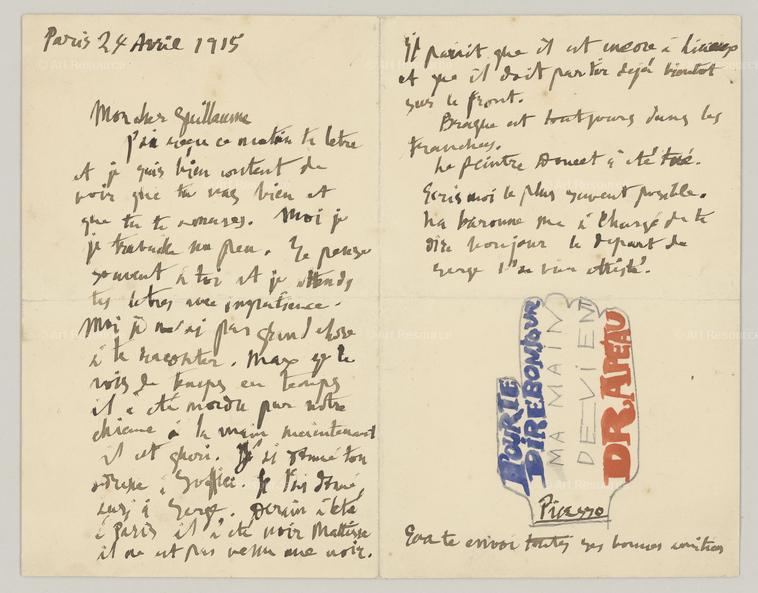 Paris 24 Avril 1915
Mon cher Guillaume
j'ai reçu ce matin ta letre
et je suis bien content de
voir que tu vas bien et
que tu te Moi je
je travaille un peu. Je pense
souvent à toi et je attends
tes letres avec impatience.
Moi je n'ai pas grand chose
à te raconter. Max je le
vois de temps en temps
il a été mordu par notre
chienne à la main maintenant
il est gueri. J'ai donné ton
adresse à Soffici. Je l'ai donné
ausi à Serge. Derain a été
à Paris il a été voir Matisse
il ne est pas venu me voir.
Il parait que il est encore à Lisieux
et que il doit partir dejá bientot
sur le front.
Braque est toutjours dans les
tranchees.
Le peintre Doucet a été tué.
Ecris moi le plus souvent posible.
La baronne me a chargé de te
dire bonjour le depart de
Serge l'a bien attristé.
POUR TE
DIRE BONJOUR
MA MAIN
DEVIENT
DRAPEAU
Picasso
Eva te envoi toutes ses bonnes amities
© Art Resource